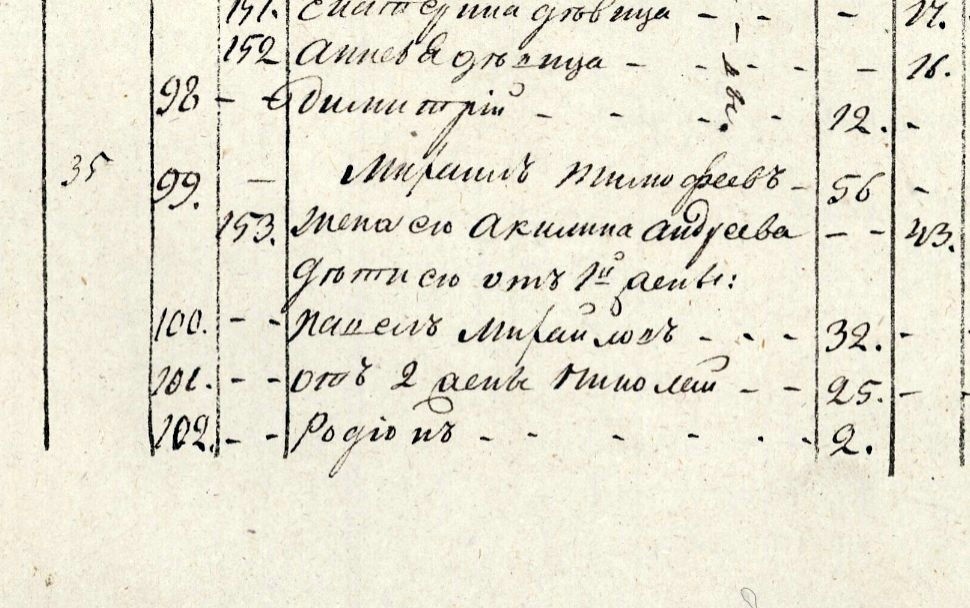 151. Екатерина дѣвица - - - 17.
152 Анна дѣвица - - - - 16.
98 - - Димитрій - - - - 12. -
35 99. - Михаилъ Тимофеевъ - 56 -
153. Жена его Акилина Андреева - - 43.
Дѣти его отъ 1й жены:
100. - - Павелъ Михайловъ - - - 32. -
101. - - отъ 2 жены Николай - - 25. -
102. - - Родіонъ - - - - - 2.